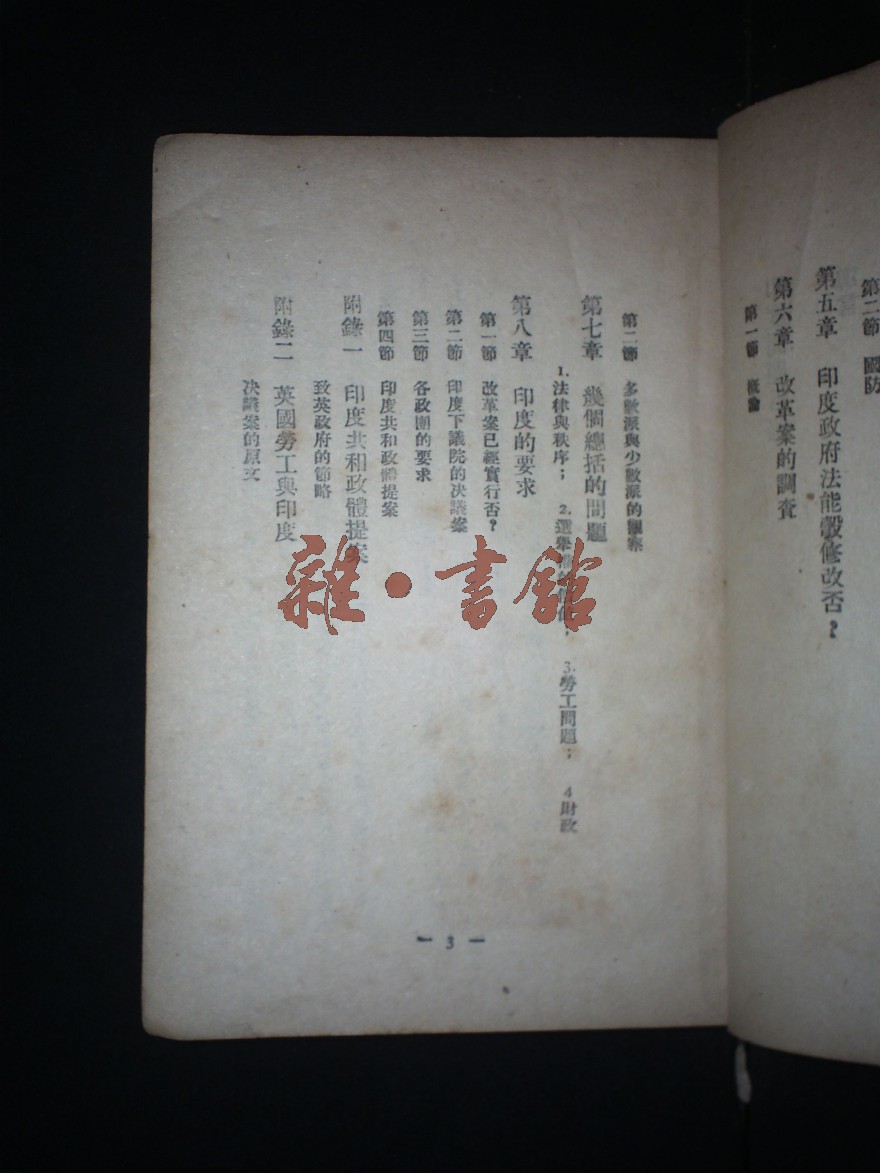 第二節 國防
第五章 印度政府法能彀修改否?
第六章 改革案的調查
第一節 概論
第二節 多數派與少數派的
第七章 幾個總括的問題
1.法律與秩序; 2.選舉 3.勞工問題; 4財政
第八章 印度的要求
第一節 改革案已經實行否?
第二節 印度下議院的決議案
第三節 各政團的要求
第四節 印度共和政體提案
附錄一 印度共和政體提案
致英政府的節略
附錄二 英國勞工與印度
決議案的原文
— 3 —
雜·書館